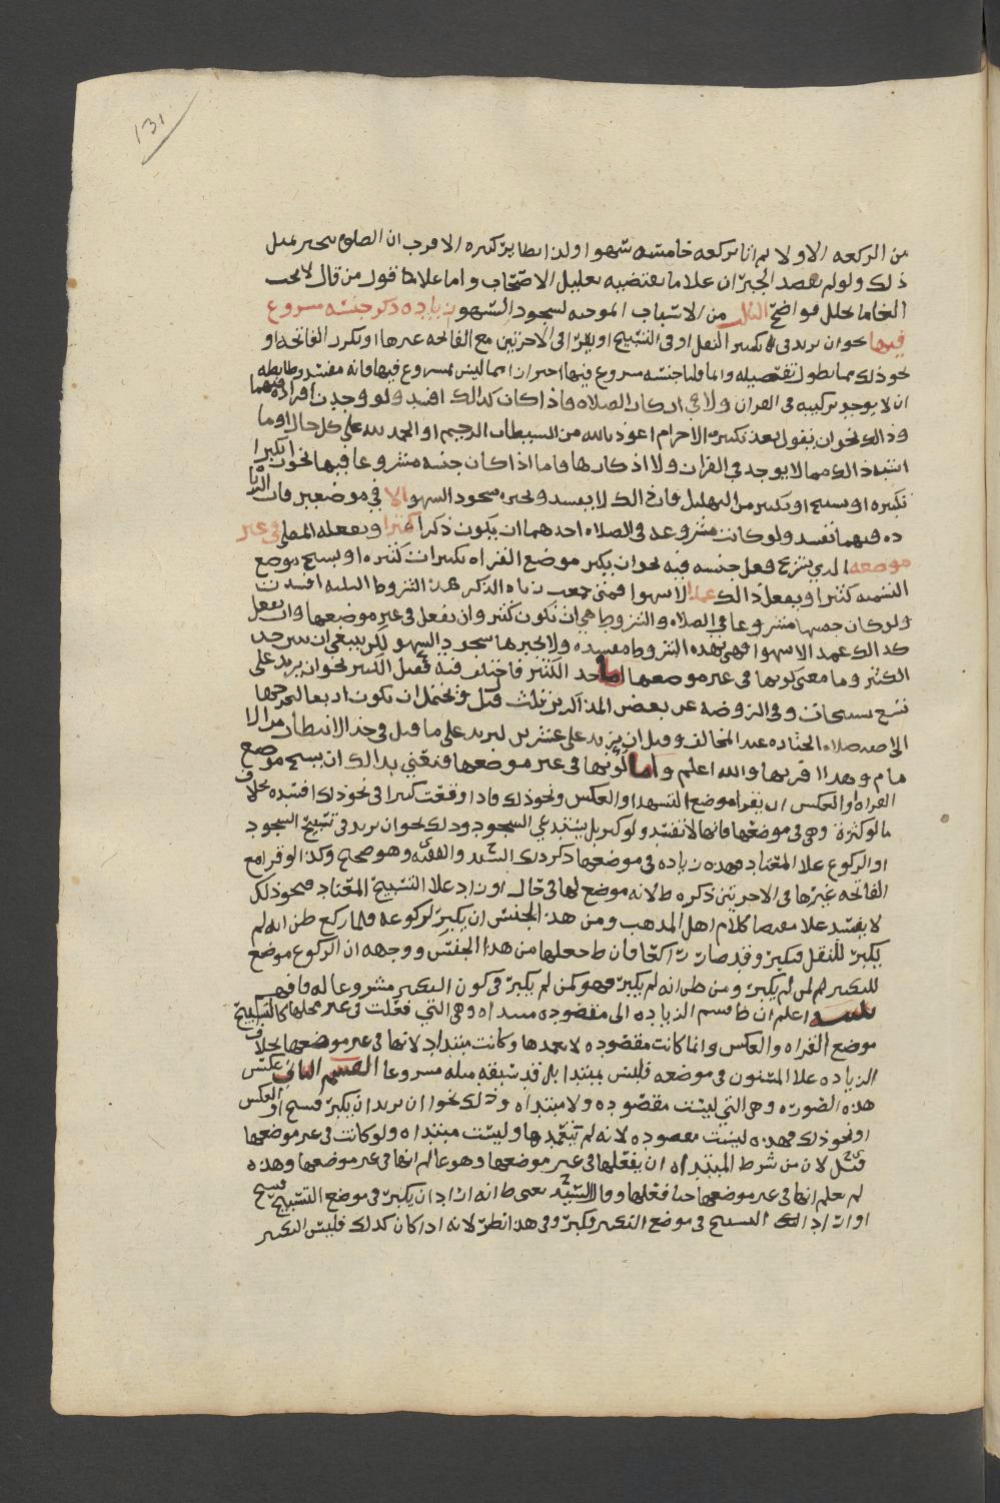 131
من الركعه الاولا ثم اتا بركعه خامسه سهوا ولذا نظاير كثيره الاقرب ان الصلوه تنجبر بمثل
ذلك ولو لم يقصد الجبر ان علا ما يقتضيه تعليل الاصحاب واما علا ما قول من قال لا يجب
فواضح الثالث من الاسباب الموجبه لسجود السهو زياده ذكر جنسه مشروع
فيها نحو ان يزيد في تكبير النقل او في التسبيح او يقرا في الاخرتين مع الفاتحه غيرها او يكرر الفاتحه او
نحو ذلك مما يطول تفصيله وانما قلنا جنسه مشروع فيها احترازا مما ليس بمشروع فيها فانه مفسد وضابطه
ان لا يوجد تركيبه في القران ولا في اذكار الصلاه فاذا كان كذالك افسد ولو وجدت افراده فيهما
وذالك نحو ان يقول بعد تكبيره الاحرام اعوذ بالله من الشيطان الرجيم او الحمد لله على كل حال او ما
اشبه ذالك مما لا يوجد في القران ولا اذكارها فاما اذا كان جنسه مشروعا فيها نحو تكبيرا
تكبيره او تسبيح او تكبير من التهليل فان ذالك لا يفسد ولجبره سجود السهو الا في موضعين فان الزيا
ده فيهما تفسد ولو كانت مشروعه في الصلاه احدهما ان يكون ذكرا كثيرا ويفعله المصلي في غير
موضعه الذي يشرع فعل جنسه فيه نحو ان يكبر موضع القراه تكبيرات كثيره او يسبح موضع
التسميه كثيرا ويفعل ذالك عمدا لا سهوا فمتى جمعت زياده الذكر هذه الشروط الثلثه افسدت
ولو كان جنسها مشروعا في الصلاه والشروط هي ان تكون كثير وان يفعل في غير موضعها وان يفعل
كذالك عمدا لا سهوا فهي بهذه الشروط مفسده ولا يجبرها سجود السهو لكن ينبغي ان نبين حد
الكثير وما معنى كونها في غير موضعها اما حد الكثير فاختلف فيه فقيل الكثير نحو ان يزيد على
تسع تسبيحات وفي الروضه عن بعض المذاكرين ثلاث قيل ويحتمل ان تكون اربعا
الى صفه صلاه الجنازه عند المخالف وقيل ان يزيد على عشر ليزيد على ما قيل في حد الانتظار من الا
مام وهذا اقربها والله اعلم واما كونها في غير موضعها فنعني بذالك ان يسبح موضع
القراه او العكس او يقرا موضع التشهد او العكس ونحو ذلك فاذا وقعت كثيرا في نحو ذلك افسده بخلاف
ما لو كثرة وهي في موضعها فانها لا تفسد ولو كثر بل يستدعي السجود وذلك نحو ان يزيد في تسبيح السجود
او الركوع علا المعتاد فهذه زياده في موضعها ذكر ذلك السيد والفقيه وهو صحيح وكذا لو قرا مع
الفاتحه غيرها في الاخرتين ذكره ط لانه موضع لها في حال او زاد علا التسبيح المعتاد فنحو ذلك
لا يفسد علا مقتضا كلام اهل المذهب ومن هذا الجنس ان يكبر لركوعه فلما ركع ظن انه لم
يكبر للنقل فكبر وقد صار راكعا فان ط جعلها من هذا الجنس ووجهه ان الركوع موضع
للتكبير لمن لم يكبر ومن ظن انه لم يكبر فهو كمن لم يكبر في كون التكبير مشروعا له فافهم
تنبيه اعلم ان ط قسم الزياده الى مقصوده مبتداه وهي التي فعلت في غير محلها كالتسبيح
موضع القراه والعكس وانما كانت مقصوده لاتعمدها وكانت مبتداه لانها في غير موضعها بخلاف
الزياده علا المسنون في موضعه فليس بمبتدا بل قد سبقه مثله مشروعا القسم الثاني عكس
هذه الصوره وهي التي ليست مقصوده ولا مبتداه وذلك نحو ان يريد ان يكبر فسبح او العكس
او نحو ذلك فهذه ليست مقصوده لانه لم يتعمدها وليست مبتداه ولو كانت في غير موضعها
قيل لان من شرط المبتداه ان يفعلها في غير موضعها وهو عالم انها في غير موضعها وهذه
لم يعلم انها في غير موضعها حين فعلها وقال السيد يعني ط انه اراد ان يكبر في موضع التسبيح فسبح
او اراد التسبيح في موضع التكبير فكبر وفي هذا نظر لانه اذا كان كذلك فليس التكبير